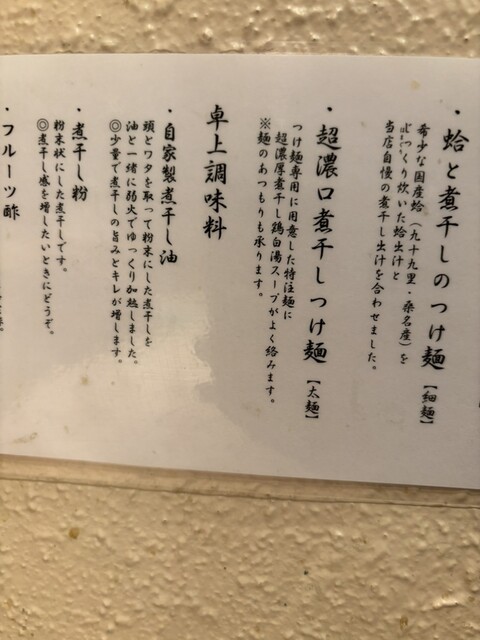 ・蛤と煮干しのつけ麺【細麺】
希少な国産蛤（九十九里・桑名産）を
じっくり炊いた蛤出汁と
当店自慢の煮干し出汁を合わせました。
・超濃口煮干しつけ麺【太麺】
つけ麺専用に用意した特注麺に
超濃厚煮干し鶏白湯スープがよく絡みます。
※麺のあつもりも承ります。
卓上調味料
・自家製煮干し油
頭とワタを取って粉末にした煮干しを
油と一緒に弱火でゆっくり加熱しました。
◎少量で煮干しの旨みとキレが増します。
・煮干し粉
粉末状にした煮干しです。
◎煮干し感を増したいときにどうぞ。
・フルーツ酢